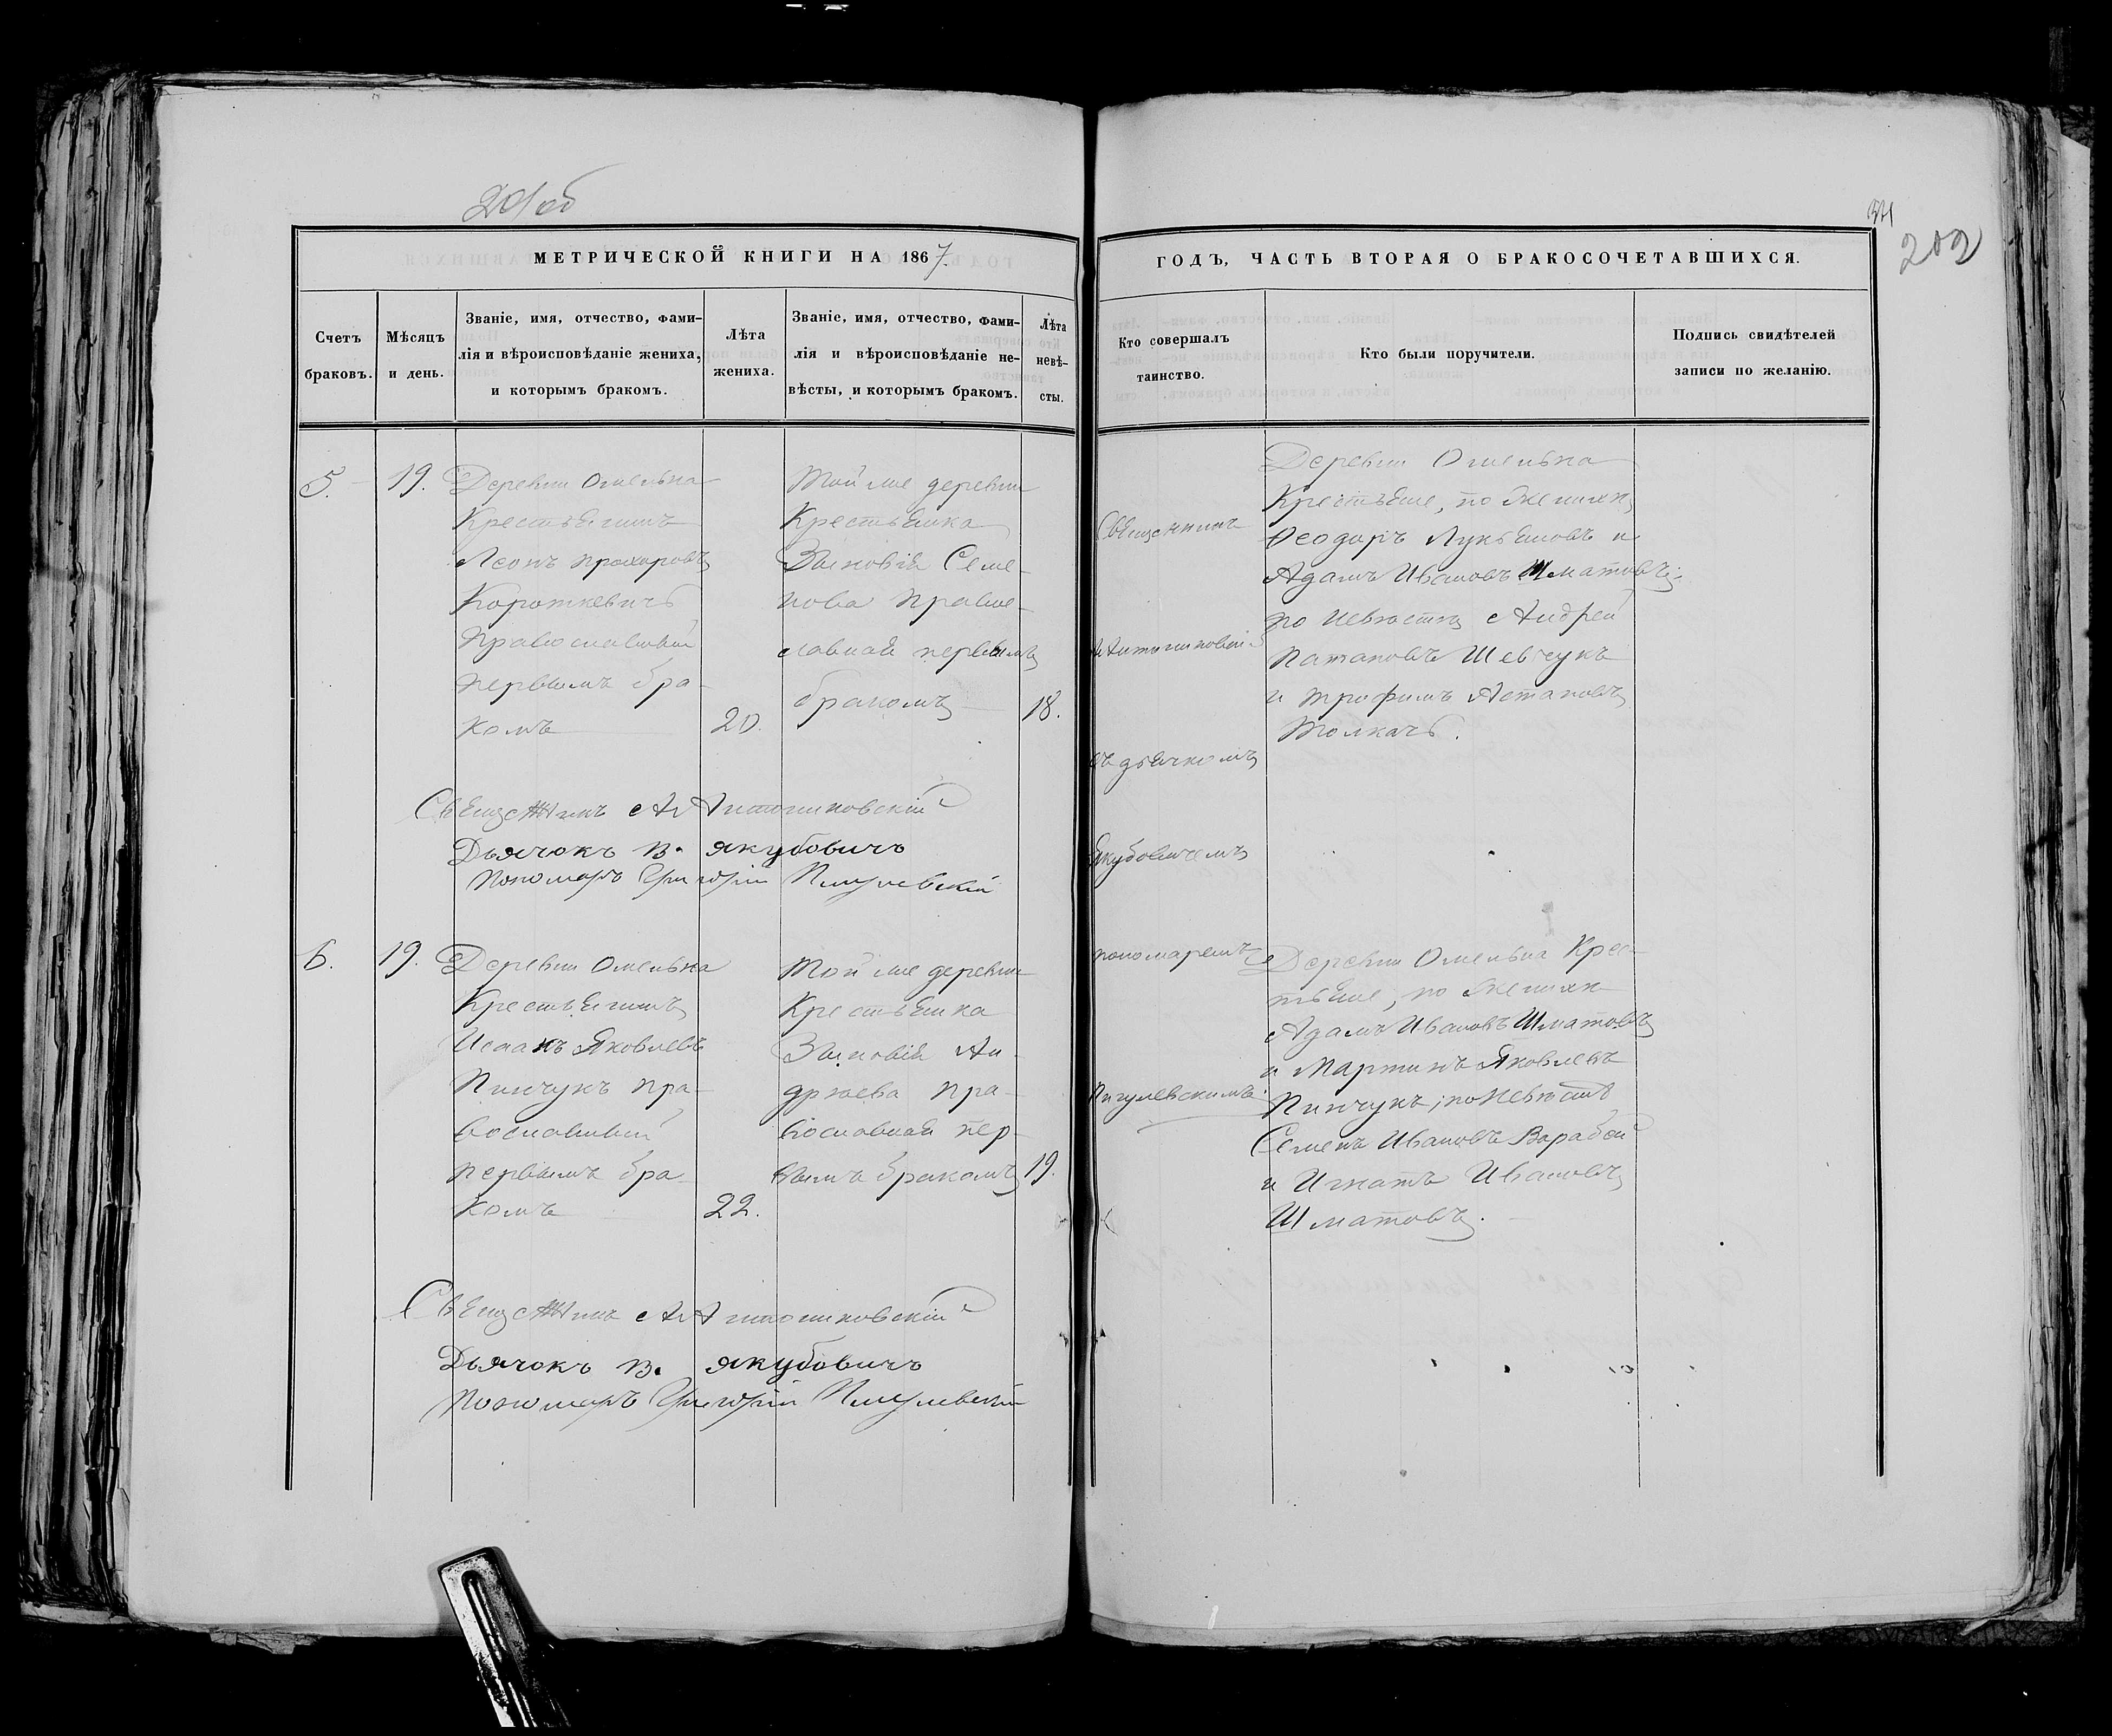 201об
34
202
МЕТРИЧЕСКОЙ КНИГИ НА 1867.
ГОДЪ, ЧАСТЬ ВТОРАЯ О БРАКОСОЧЕТАВШИХСЯ.
Счетъ
браковъ.
Мѣсяцъ
и день.
Званіе, имя, отчество, фами-
лія и вѣроисповѣданіе жениха,
и которымъ бракомъ.
Лѣта
жениха.
Званіе, имя, отчество, фами-
лія и вѣроисповѣданіе не-
вѣсты, и которымъ бракомъ.
Лѣта
невѣ-
сты.
Кто совершалъ
таинство.
Кто были поручители.
Подпись свидѣтелей
записи по желанію.
5.
19.
Деревни Омельна
Крестьянинъ
Леонъ Прохоровъ
Короткевичъ
православный
первымъ бра-
комъ
20.
Той же деревни
Крестьянка
Зиновія Семе-
нова право-
славная первымъ
бракомъ
18.
Священникъ
А Антониковскій
съ дьячкомъ
Якубовичемъ
пономаремъ
Пигулевскимъ
Деревни Омельна
Крестьяне, по женихѣ
Ѳеодоръ Лукьяновъ и
Адамъ Ивановъ Шматовъ;
по невѣстѣ Андрей
Патаповъ Шевчукъ
и Трофимъ Астаповъ
Толкачъ.
Священникъ А Антониковскій
Дьячокъ В. Якубовичъ
Пономарь Григорій Пигулевскій
6.
19.
Деревни Омельна
Крестьянинъ
Исаакъ Яковлевъ
Пинчукъ пра-
вославный
первымъ бра-
комъ
22.
Той же деревни
Крестьянка
Зиновія Ан-
дреева пра-
вославная пер-
вымъ бракомъ
19.
Деревни Омельна Крес-
тьяне, по женихѣ
Адамъ Ивановъ Шматовъ
и Мартинъ Яковлевъ
Пинчукъ; по невѣстѣ
Семенъ Ивановъ Варабей
и Игнатъ Ивановъ
Шматовъ.
Священникъ А Антониковскій
Дьячокъ В. Якубовичъ
Пономарь Григорій Пигулевскій